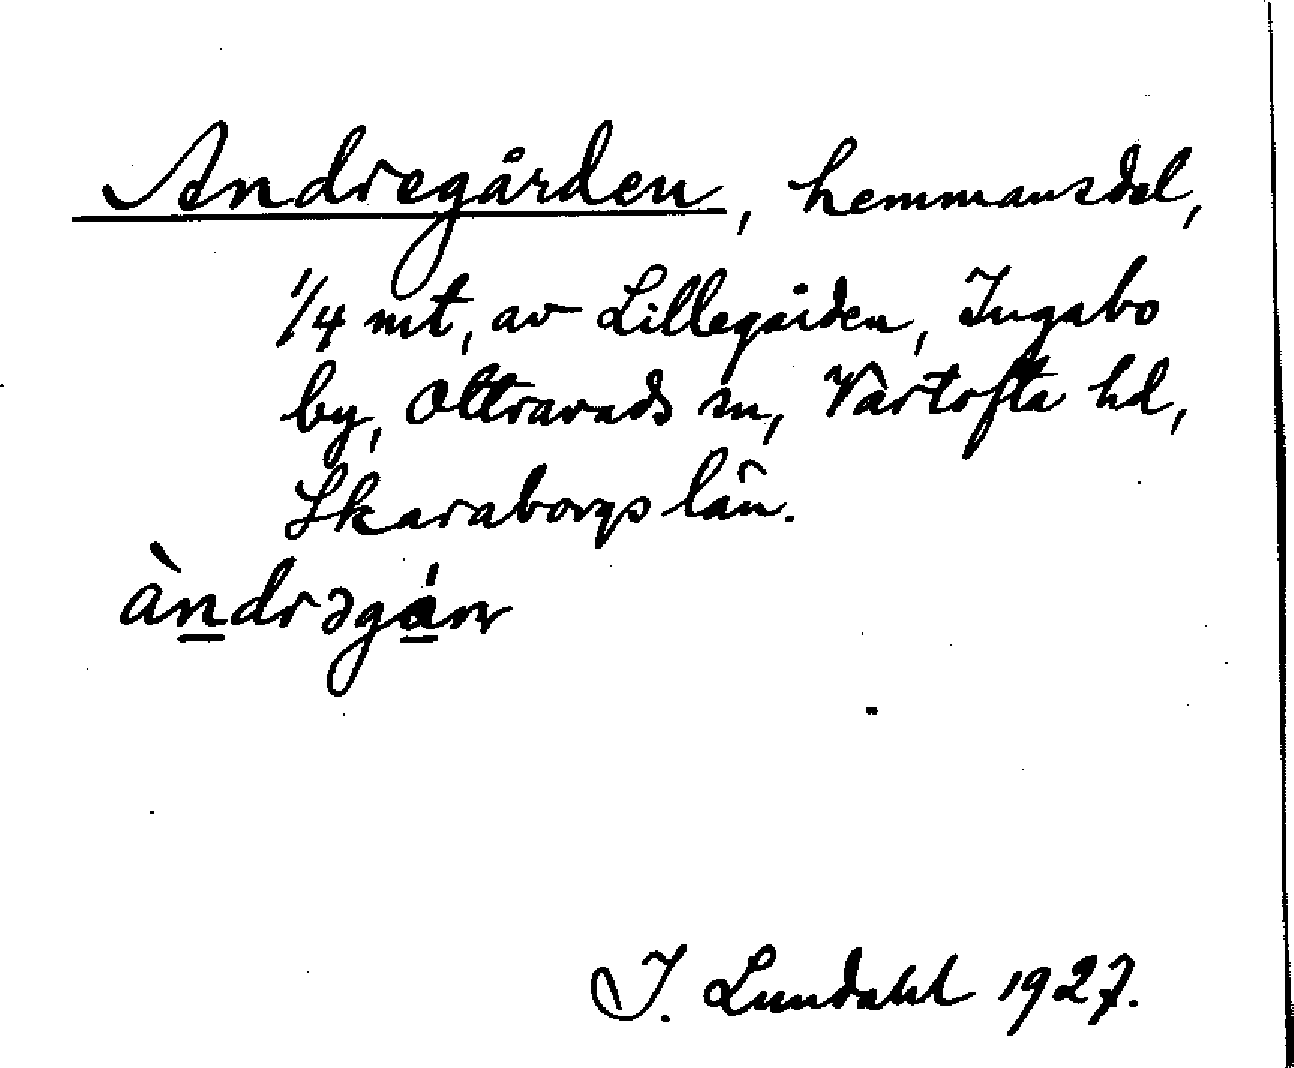 Andregården, hemmansdel,
1/4 mt, av Lillegården, Ingabo
by, Ottravads sn, Vartofta hd,
Skaraborgs län.
àndrəgán
I. Lundahl 1927.